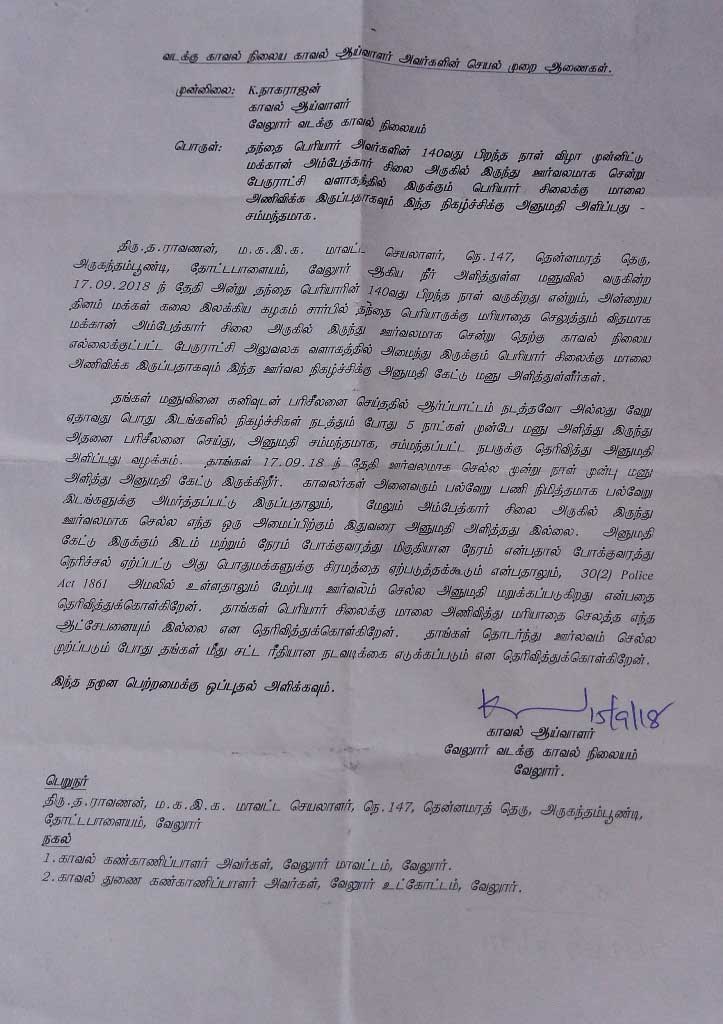 வடக்கு காவல் நிலைய காவல் ஆய்வாளர் அவர்களின் செயல் முறை ஆணைகள்.
முன்னிலை: K.நாகராஜன்
காவல் ஆய்வாளர்
வேலூர் வடக்கு காவல் நிலையம்
பொருள்: தந்தை பெரியார் அவர்களின் 140வது பிறந்த நாள் விழா முன்னிட்டு
மக்கான் அம்பேத்கார் சிலை அருகில் இருந்து ஊர்வலமாக சென்று
பேருராட்சி வளாகத்தில் இருக்கும் பெரியார் சிலைக்கு மாலை
அணிவிக்க இருப்பதாகவும் இந்த நிகழ்ச்சிக்கு அனுமதி அளிப்பது -
சம்மந்தமாக.
திரு.த.ராவணன், ம.க.இ.க. மாவட்ட செயலாளர், நெ.147, தென்னமரத் தெரு,
அருகந்தம்பூண்டி, தோட்டபாளையம், வேலூர் ஆகிய நீர் அளித்துள்ள மனுவில் வருகின்ற
17.09.2018 ந் தேதி அன்று தந்தை பெரியாரின் 140வது பிறந்த நாள் வருகிறது என்றும், அன்றைய
தினம் மக்கள் கலை இலக்கிய கழகம் சார்பில் தந்தை பெரியாருக்கு மரியாதை செலுத்தும் விதமாக
மக்கான் அம்பேத்கார் சிலை அருகில் இருந்து ஊர்வலமாக சென்று தெற்கு காவல் நிலைய
எல்லைக்குட்பட்ட பேருராட்சி அலுவலக வளாகத்தில் அமைந்து இருக்கும் பெரியார் சிலைக்கு மாலை
அணிவிக்க இருப்பதாகவும் இந்த ஊர்வல நிகழ்ச்சிக்கு அனுமதி கேட்டு மனு அளித்துள்ளீர்கள்.
தங்கள் மனுவினை கனிவுடன் பரிசீலனை செய்ததில் ஆர்ப்பாட்டம் நடத்தவோ அல்லது வேறு
ஏதாவது பொது இடங்களில் நிகழ்ச்சிகள் நடத்தும் போது 5 நாட்கள் முன்பே மனு அளித்து இருந்து
அதனை பரிசீலனை செய்து, அனுமதி சம்மந்தமாக, சம்மந்தப்பட்ட நபருக்கு தெரிவித்து அனுமதி
அளிப்பது வழக்கம். தாங்கள் 17.09.18 ந் தேதி ஊர்வலமாக செல்ல முன்று நாள் முன்பு மனு
அளித்து அனுமதி கேட்டு இருக்கிறீர். காவலர்கள் அனைவரும் பல்வேறு பணி நிமித்தமாக பல்வேறு
இடங்களுக்கு அமர்த்தப்பட்டு இருப்பதாலும், மேலும் அம்பேத்கார் சிலை அருகில் இருந்து
ஊர்வலமாக செல்ல எந்த ஒரு அமைப்பிற்கும் இதுவரை அனுமதி அளித்தது இல்லை. அனுமதி
கேட்டு இருக்கும் இடம் மற்றும் நேரம் போக்குவரத்து மிகுதியான நேரம் என்பதால் போக்குவரத்து
நெரிச்சல் ஏற்ப்பட்டு அது பொதுமக்களுக்கு சிரமத்தை ஏற்படுத்தக்கூடும் என்பதாலும், 30(2) Police
Act 1861 அமலில் உள்ளதாலும் மேற்படி ஊர்வலம் செல்ல அனுமதி மறுக்கப்படுகிறது என்பதை
தெரிவித்துக்கொள்கிறேன். தாங்கள் பெரியார் சிலைக்கு மாலை அணிவித்து மரியாதை செலத்த எந்த
ஆட்சேபனையும் இல்லை என தெரிவித்துக்கொள்கிறேன். தாங்கள் தொடர்ந்து ஊர்லவம் செல்ல
முற்ப்படும் போது தங்கள் மீது சட்ட ரீதியான நடவடிக்கை எடுக்கப்படும் என தெரிவித்துக்கொள்கிறேன்.
இந்த நமுன பெற்றமைக்கு ஒப்புதல் அளிக்கவும்.
15/9/18
காவல் ஆய்வாளர்
வேலூர் வடக்கு காவல் நிலையம்
வேலூர்.
பெறுநர்
திரு.த.ராவணன், ம.க.இ.க. மாவட்ட செயலாளர், நெ.147, தென்னமரத் தெரு, அருகந்தம்பூண்டி,
தோட்டபாளையம், வேலூர்
நகல்
1.காவல் கண்காணிப்பாளர் அவர்கள், வேலூர் மாவட்டம், வேலூர்.
2.காவல் துணை கண்காணிப்பாளர் அவர்கள், வேலூர் உட்கோட்டம், வேலூர்.